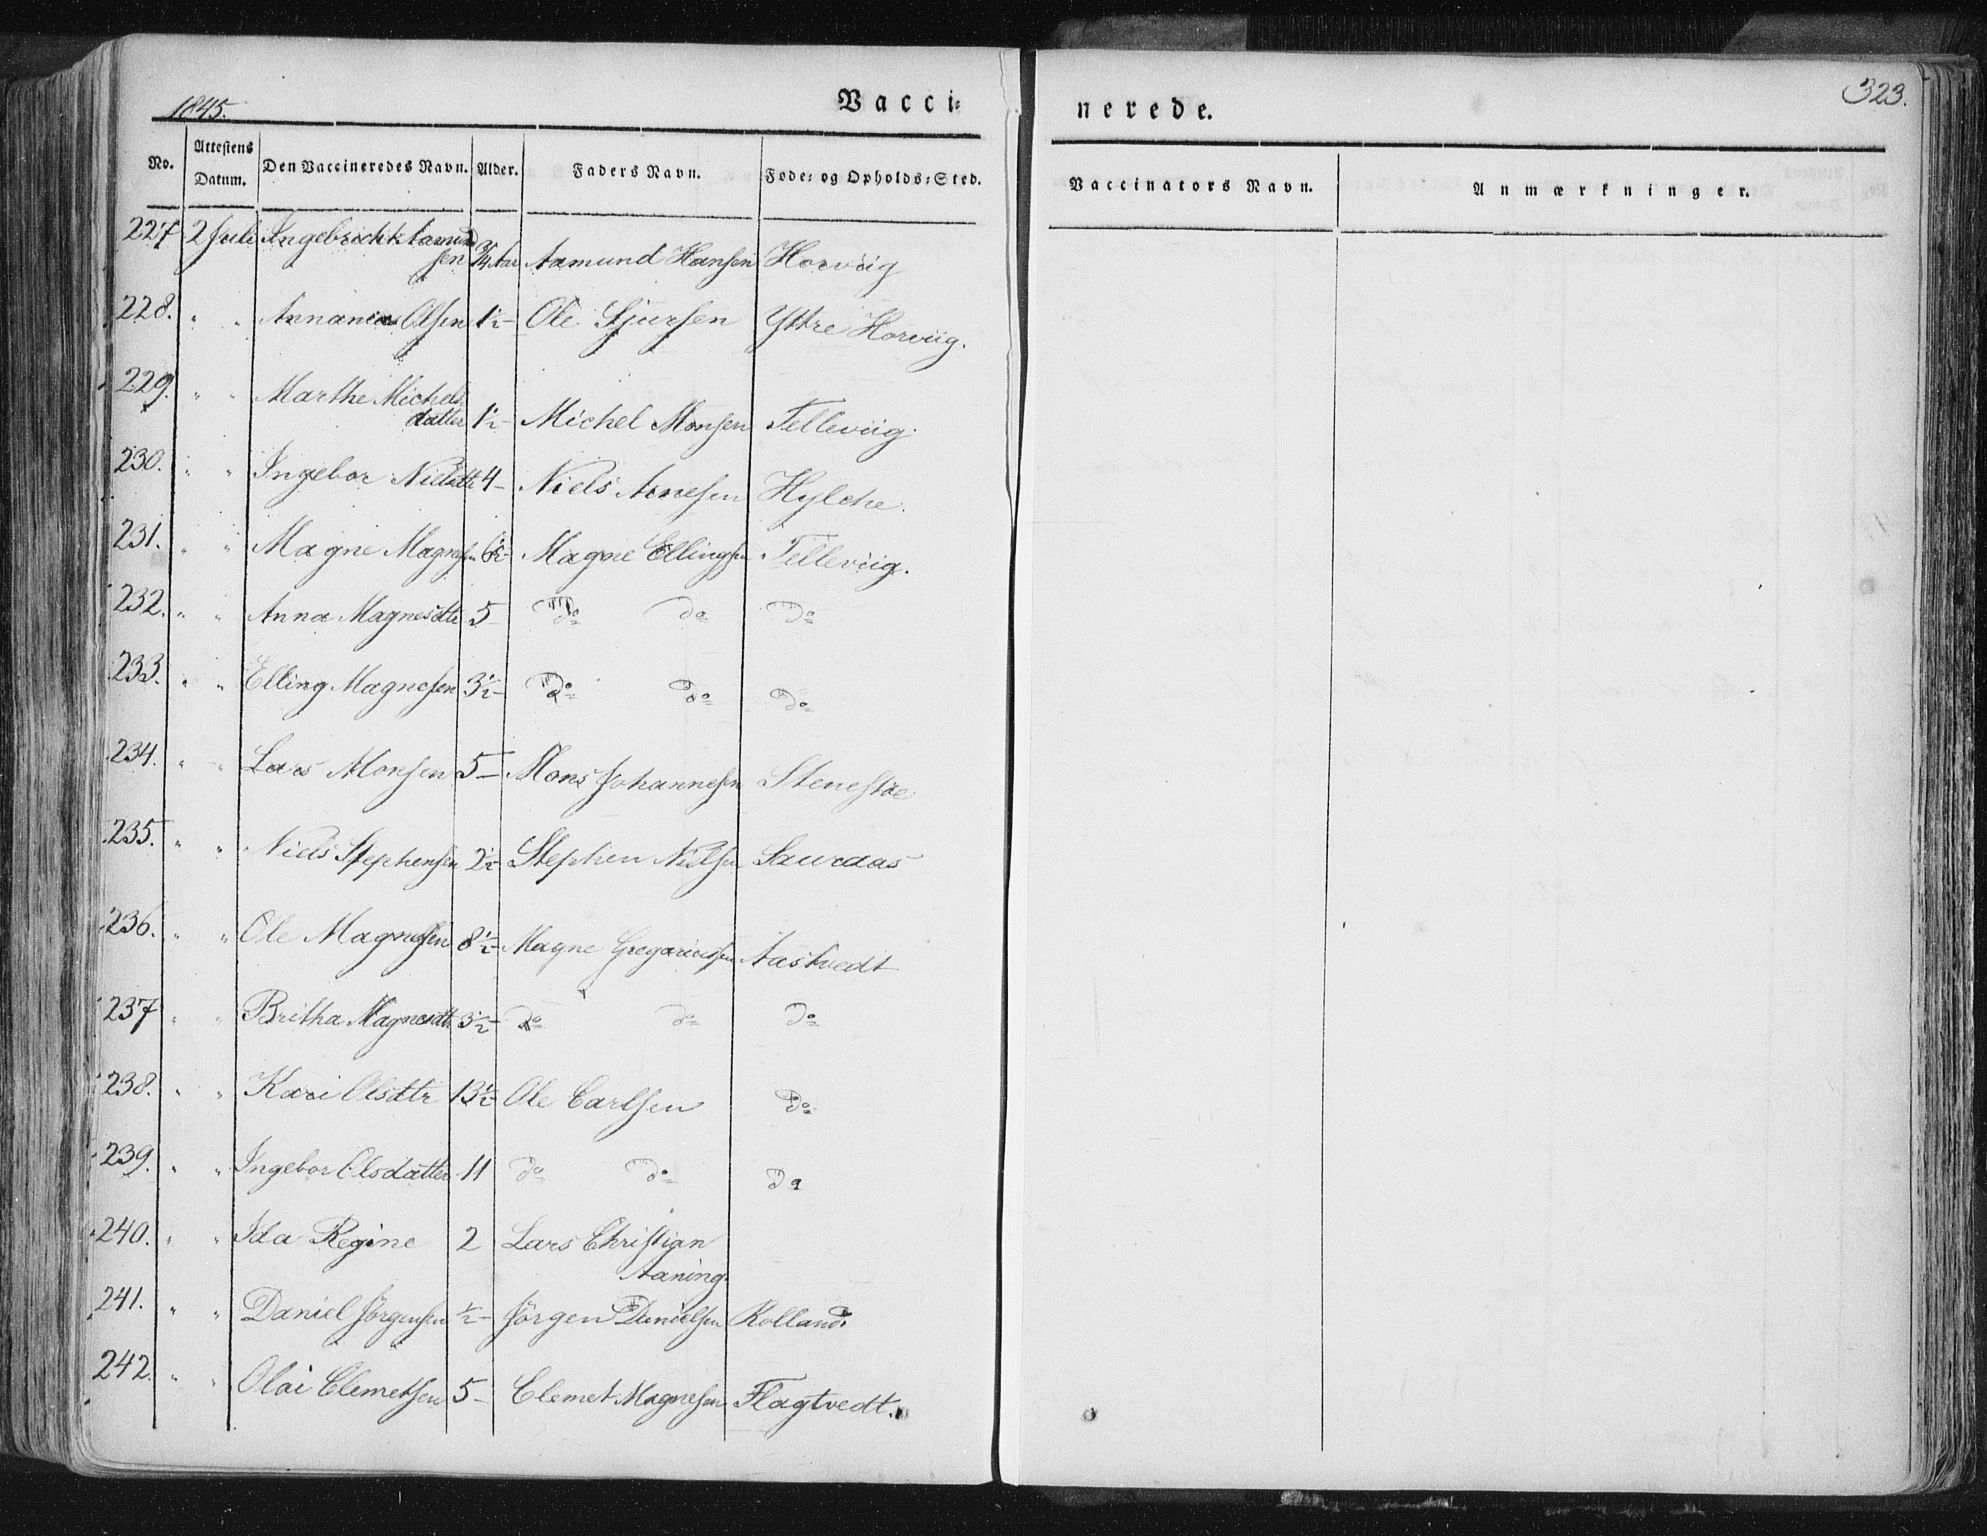 1845.
Vacci-
nerede.
323.
No. Attestens Datum. Den Vaccineredes Navn. Alder. Faders Navn. Føde- og Opholds-Sted.
Vaccinators Navn. Anmærkninger.
227 2 Juli Ingebrickt Aamund
sen 3/4 Aar Aamund Hansen Horviig
228. " " Annanias Olsen 1½ - Ole Sjursen Yttre Horviig.
229. " " Marthe Michels
datter 1½ - Michel Monsen Telleviig.
230. " " Ingebor Nielsdtt 4 - Niels Arnesen Hylche.
231. " " Magne Magnesen 6½ - Magne Ellingsen Telleviig.
232. " " Anna Magnesdtt 5 - Do do Do
233. " " Elling Magnesen 3½ - Do Do Do
234. " " Lars Monsen 5 - Mons Johannesen Stenestøe
235. " " Niels Stephensen 2½ - Stephen Nielsen Sauraas
236. " " Ole Magnesen 8½ - Magne Gregoriussen Aastvedt
237 " " Britha Magnesdtt 3½ - Do do Do
238. " " Kari Olsdtr 13½ - Ole Carlsen Do
239. " " Ingebor Olsdatter 11 do Do Do
240. " " Ida Regine 2 Lars Christian
Aaning.
241. " " Daniel Jørgensen ½ - Jørgen Danielsen Rolland.
242. " " Olai Clemetsen 5 - Clemet Magnesen Flagtvedt.